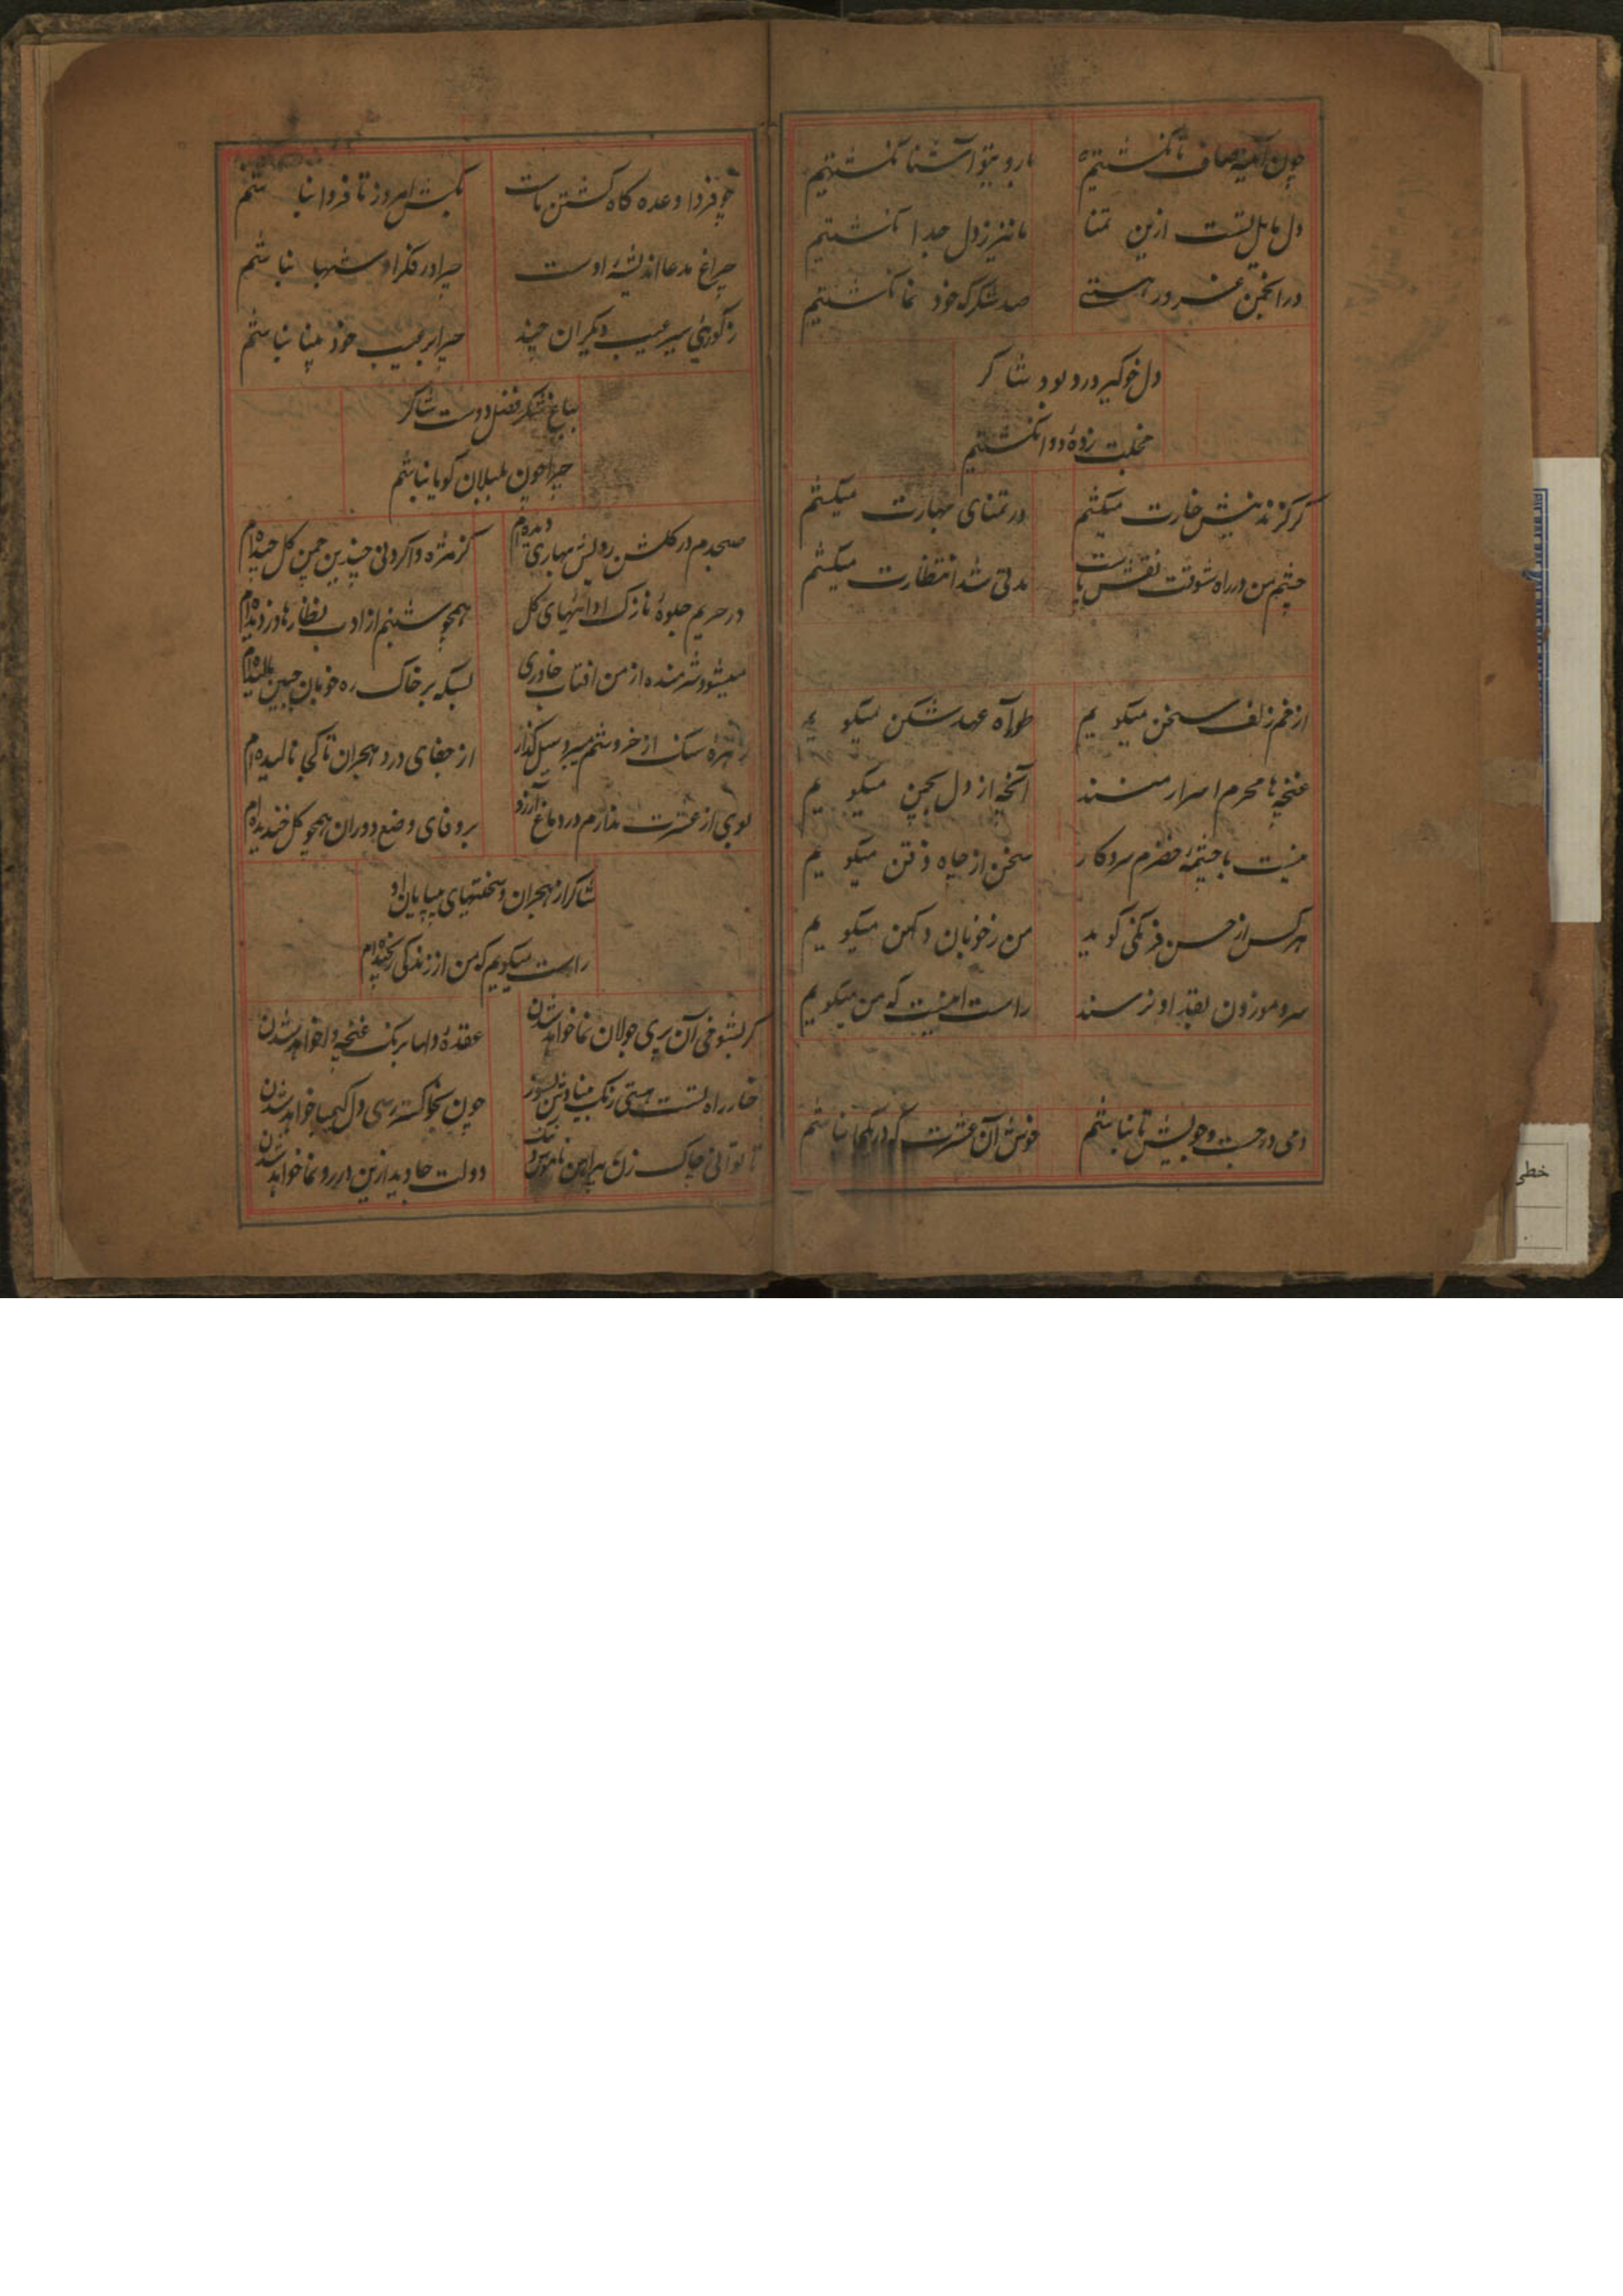 چون آینه صاف تا نکشتیم
با روبتو آشنا نکشتیم
دل مایل تست ازین تمنا
ما نیز ز دل جدا نکشتیم
در انجمن غرور هستے
صد شکر که خود نما نکشتیم
دل خوکیر درد بود شاکر
زده دوا نکشتیم
کر کزند نیش خارت میکشم
در تمنای بهارت میکشم
چشم من در راه شوقت نقش پاست
مدتی شد انتظارت میکشم
از خم زلف سخن میکویم
آه عهد شکن میکویم
غنچه ها محرم اسرار منند
آنچه از دل بچمن میکویم
نیست با چشمهٔ خضرم سروکار
سخن از چاه ذقن میکویم
هر کس از حسن فرنکی کوید
من ز خوبان دکهن میکویم
سرو موزون بقد او نرسند
راست اینست که من میکویم
دمی در جست وجویش تا نباشم
خوش آن عشرت که در یکجا نباشم
چو فردا وعده کاه کشتن ماست
بکش امروز تا فردا نباشم
چراغ مدعا اندیشهٔ اوست
چرا در فکر او شبها نباشم
ز کوری سیر عیب دیکران چند
چرا بر عیب خود بینا نباشم
بباغ شکر فضل دوست شاکر
چرا چون بلبلان کویا نباشم
صبحدم در کلشن رویش بهاری دیده ام
کز مژه وا کردنی چندین چمن کل چیده ام
در حریم جلوهٔ نازک ادائیهای کل
همچو شبنم از ادب نظارها دزدیده ام
میشود شرمنده از من افتاب خاوری
بسکه بر خاک ره خوبان جبین مالیده ام
زهره سنک از خروشم میرود سیل کذار
از جفای درد هجران تا کجا نالیده ام
بوی از عشرت ندارم در دماغ آرزو
بر وفای وضع دوران همچو کل خندیده ام
شاکر از هجران و سختیهای بیپایان او
راست میکویم که من از زندکی رنجیده ام
کر بشوخی آن پری جولان نما خواهد شدن
عقدهٔ دلها برنک غنچه وا خواهد شدن
خار راه تست هستی رنک بینادش بسوز
چون بخاکستر رسی دل کیمیا خواهد شدن
تا توانی چاک زن پیراهن ناموس و ننک
دولت جاوید ازین در رونما خواهد شدن
خطی